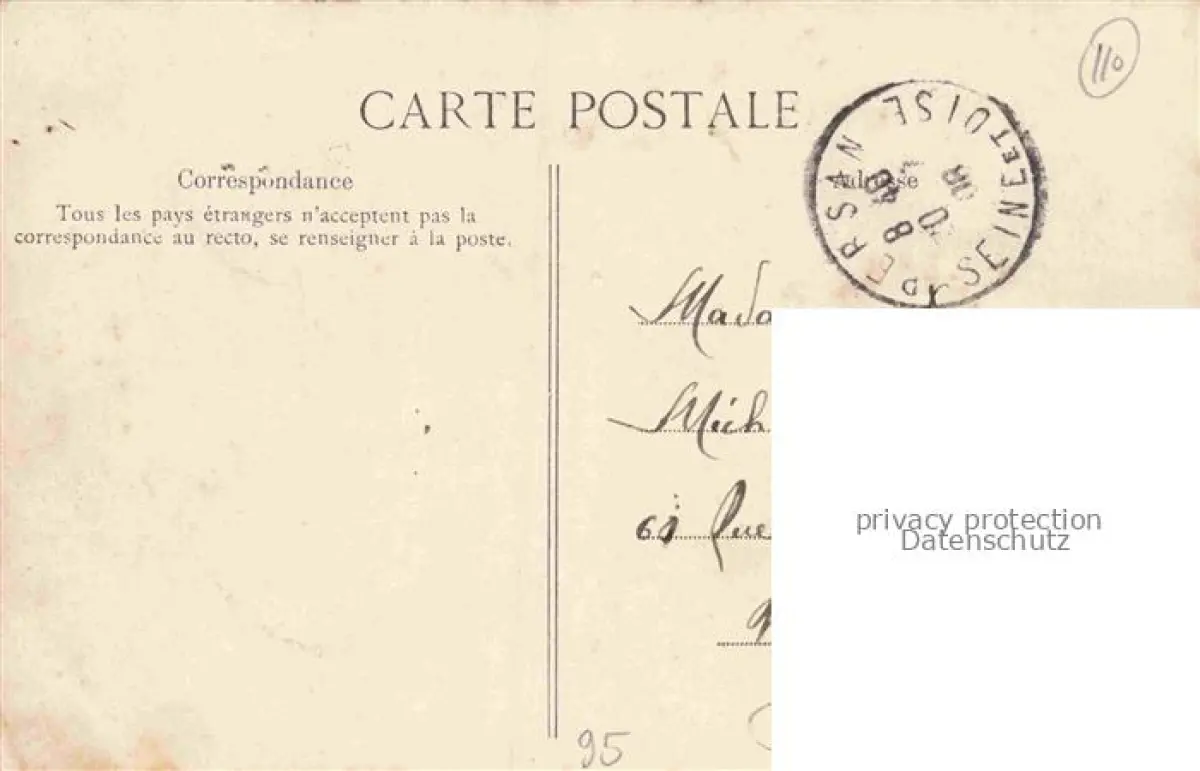 110
CARTE POSTALE
PERSAN SEINE ET OISE
8
08
Correspondance
Adresse
Tous les pays étrangers n'acceptent pas la
correspondance au recto, se renseigner à la poste.
Mada
Mich
61 Rue
privacy protection
Datenschutz
95